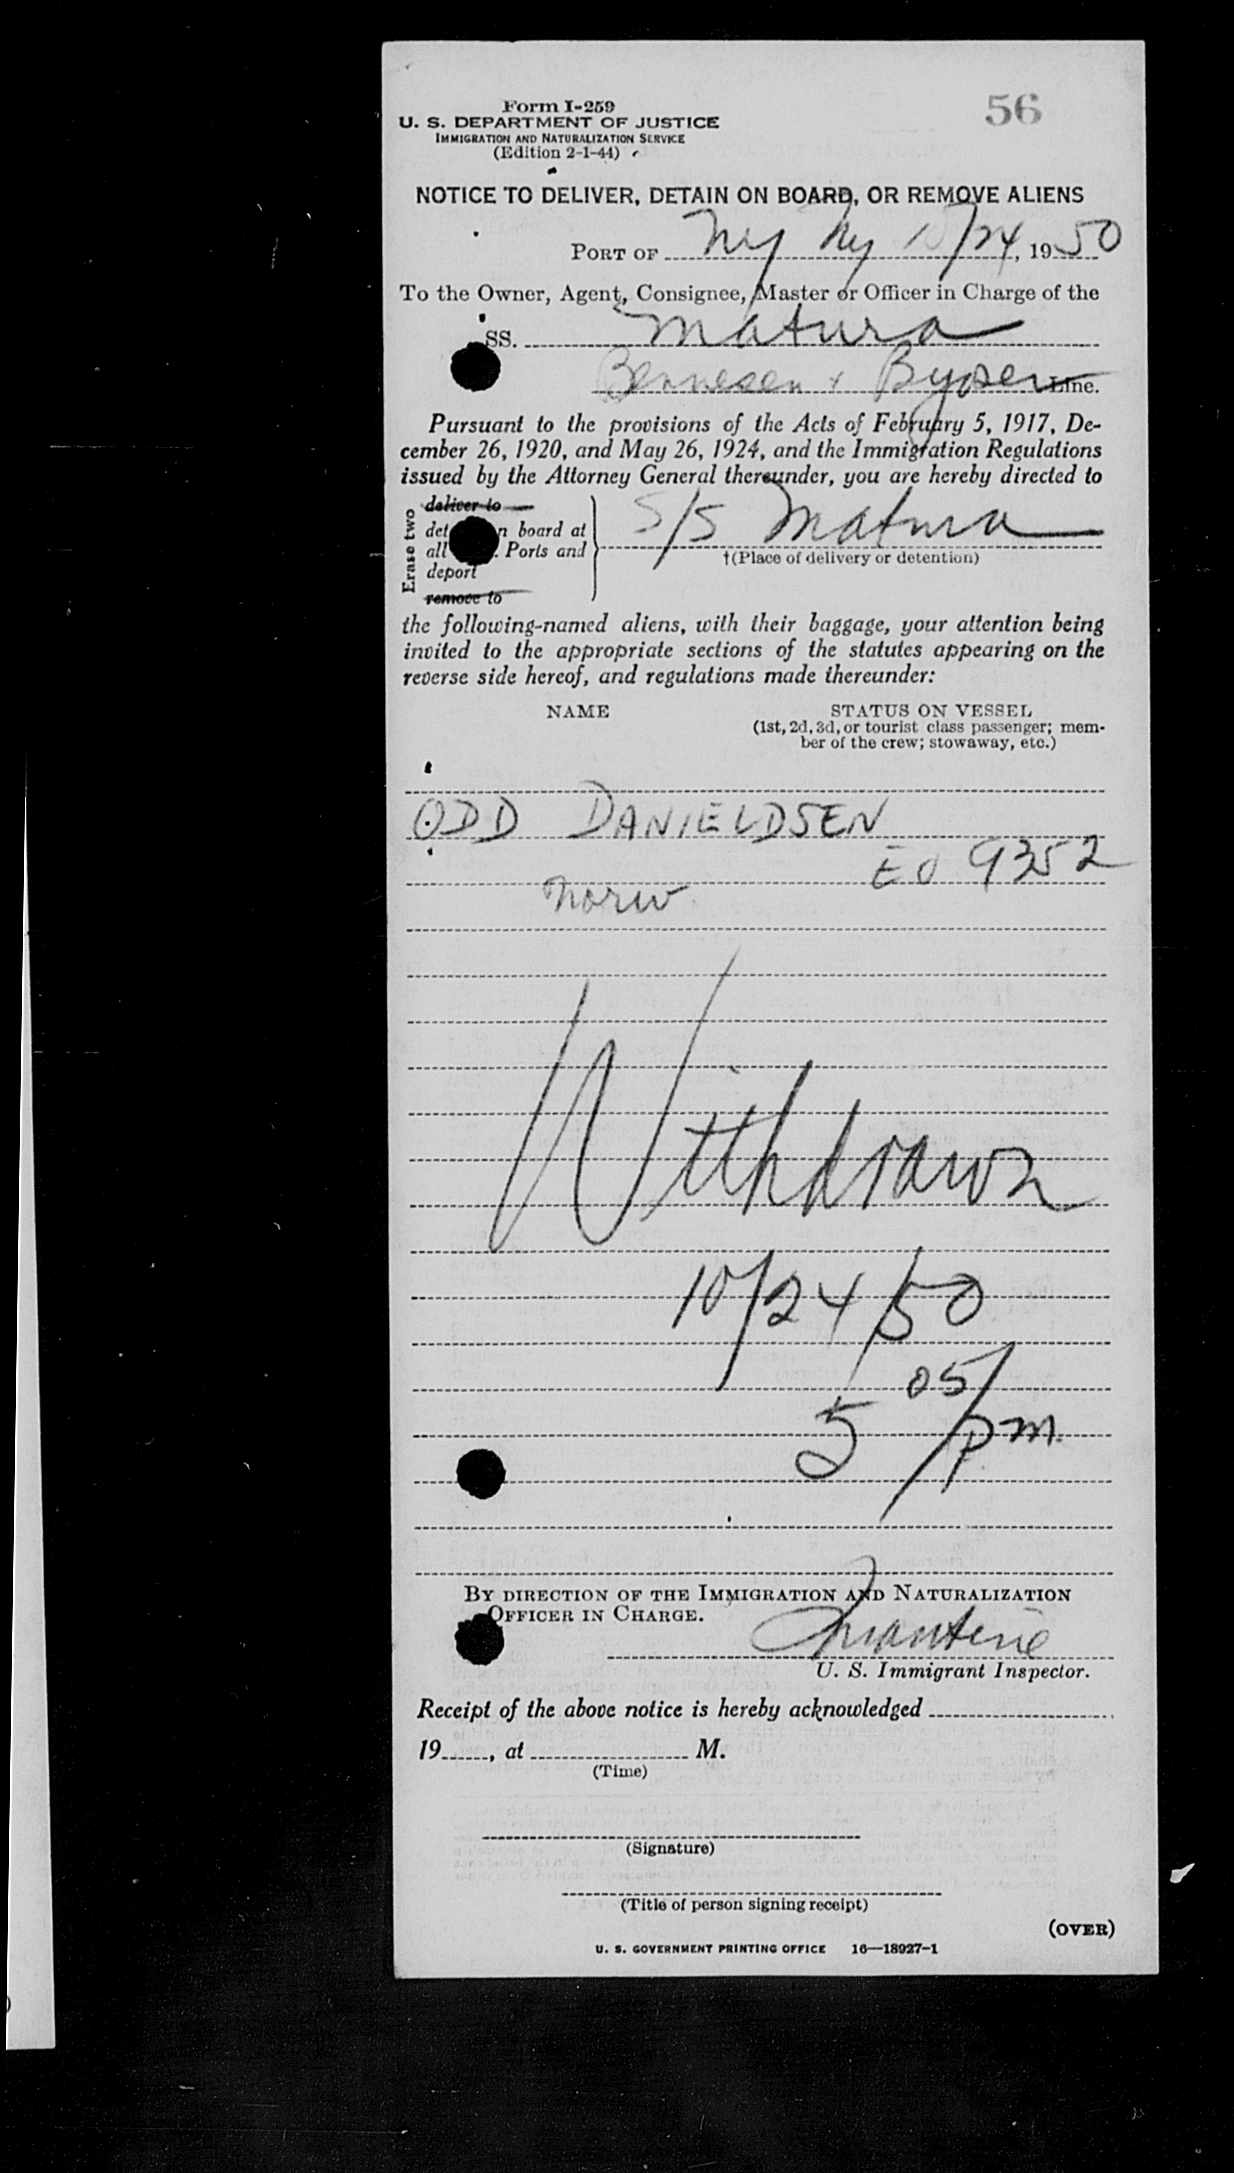 Form I-259
56
U. S. DEPARTMENT OF JUSTICE
IMMIGRATION AND NATURALIZATION SERVICE
(Edition 2-1-44)
NOTICE TO DELIVER, DETAIN ON BOARD, OR REMOVE ALIENS
PORT OF NY NY 10/24, 1950
To the Owner, Agent, Consignee, Master or Officer in Charge of the
SS. Matura
Bennesen + Line.
Pursuant to the provisions of the Acts of February 5, 1917, De-
cember 26, 1920, and May 26, 1924, and the Immigration Regulations
issued by the Attorney General thereunder, you are hereby directed to
Erase two
deliver to
det n board at
all . Ports and
deport
remove to
S/S Matura
†(Place of delivery or detention)
the following-named aliens, with their baggage, your attention being
invited to the appropriate sections of the statutes appearing on the
reverse side hereof, and regulations made thereunder:
NAME STATUS ON VESSEL
(1st, 2d, 3d, or tourist class passenger; mem-
ber of the crew; stowaway, etc.)
ODD DANIELDSEN
EO 9352
Norw
Withdrawn
10/24/50
5 05/pm.
BY DIRECTION OF THE IMMIGRATION AND NATURALIZATION
OFFICER IN CHARGE.
U. S. Immigrant Inspector.
Receipt of the above notice is hereby acknowledged
19, at M.
(Time)
(Signature)
(Title of person signing receipt)
(OVER)
U. S. GOVERNMENT PRINTING OFFICE 16—18927-1